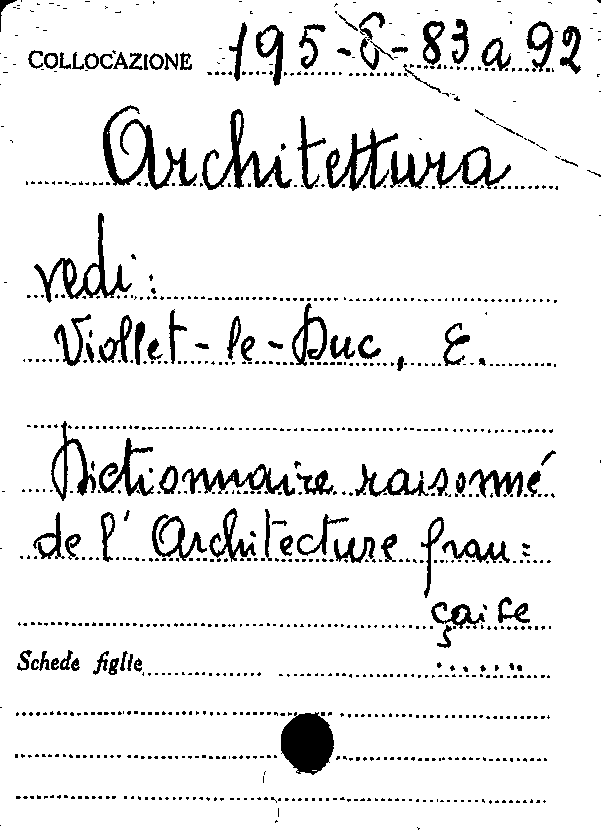 COLLOCAZIONE 195-6-83 a 92
Architettura
vedi:
Viollet-le-Duc, E.
Dictionnaire raisonné
de l'Architecture fran=
çaise
Schede figlie ......